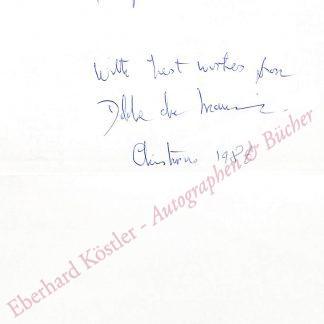 With best wishes from
Daphne du Maurier.
Christmas 198
Eberhard Köstler - Autographen & Bücher